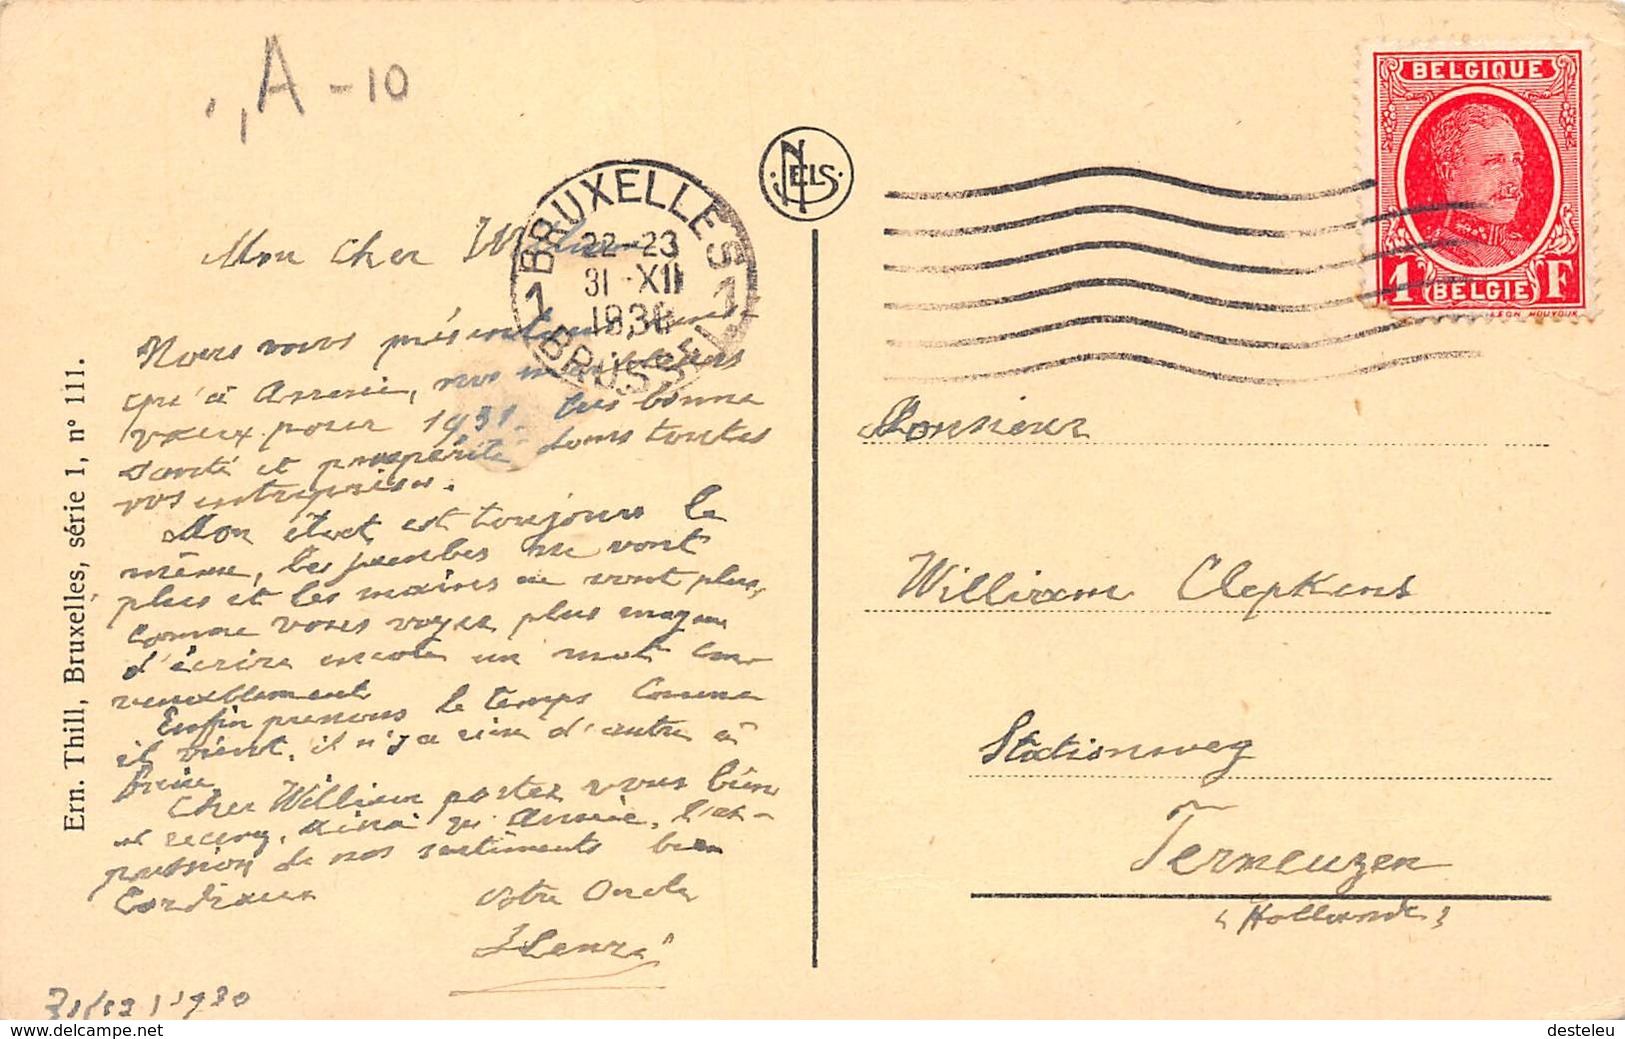 A-10
NELS
BRUXELLES 1
22-23
31-XII
1930
1 BRUSSEL 1
BELGIQUE
1 F
BELGIË
LEON HOUYOUX
Mon Cher William
Nous vous présentons, ainsi
qu'à Annie, nos meilleurs
vœux pour 1931. Très bonne
santé et prospérité dans toutes
vos entreprises.
Mon état est toujours le
même, les jambes ne vont
plus et les mains ne vont plus,
comme vous voyez plus moyen
d'écrire encore un mot con-
venablement
Enfin prenons le temps comme
il vient, il n'y a rien d'autre à
faire
Cher William portez vous bien
et recevez, ainsi qu'Annie, l'ex-
pression de nos sentiments bien
Cordiaux
Votre Oncle
Henri
31/12/1930
Ern. Thill, Bruxelles, série 1, n° 111.
Monsieur
William Clepkens
Stationsweg
Terneuzen
(Hollande)
© www.delcampe.net
desteleu